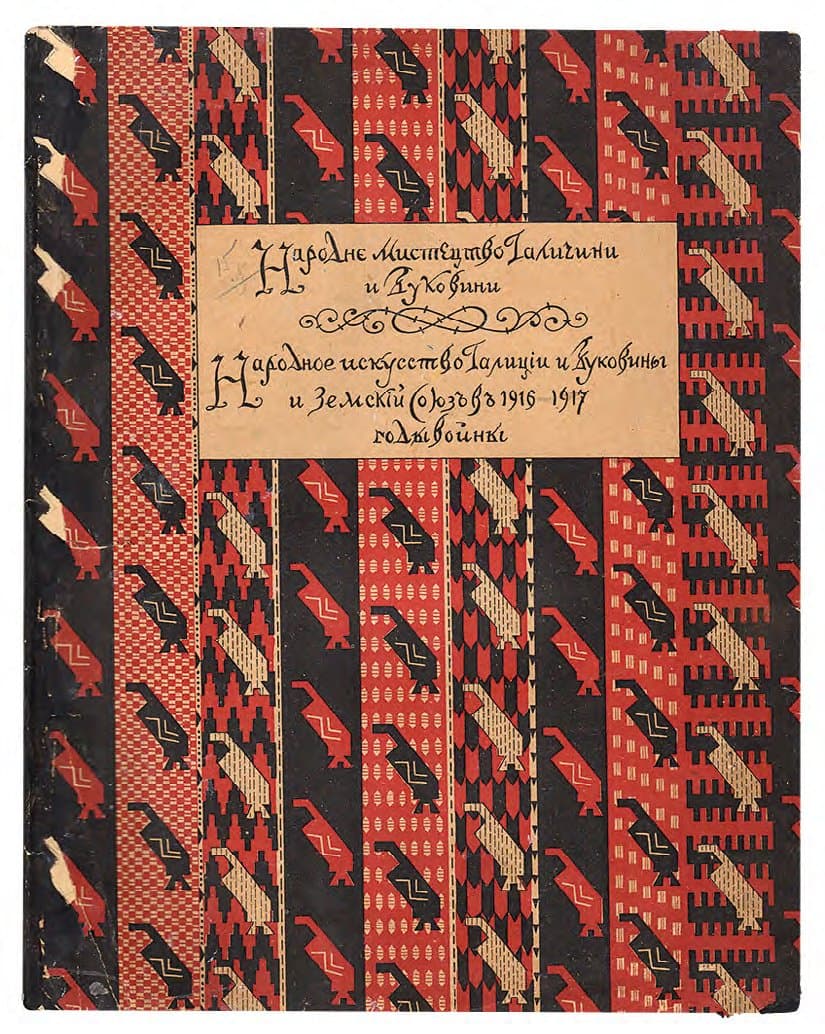 Народне мистецтво Галичини
и Буковини
Народное искусство Галиціи и Буковины
и Земскій Союзъ въ 1916–1917
годы войны
15